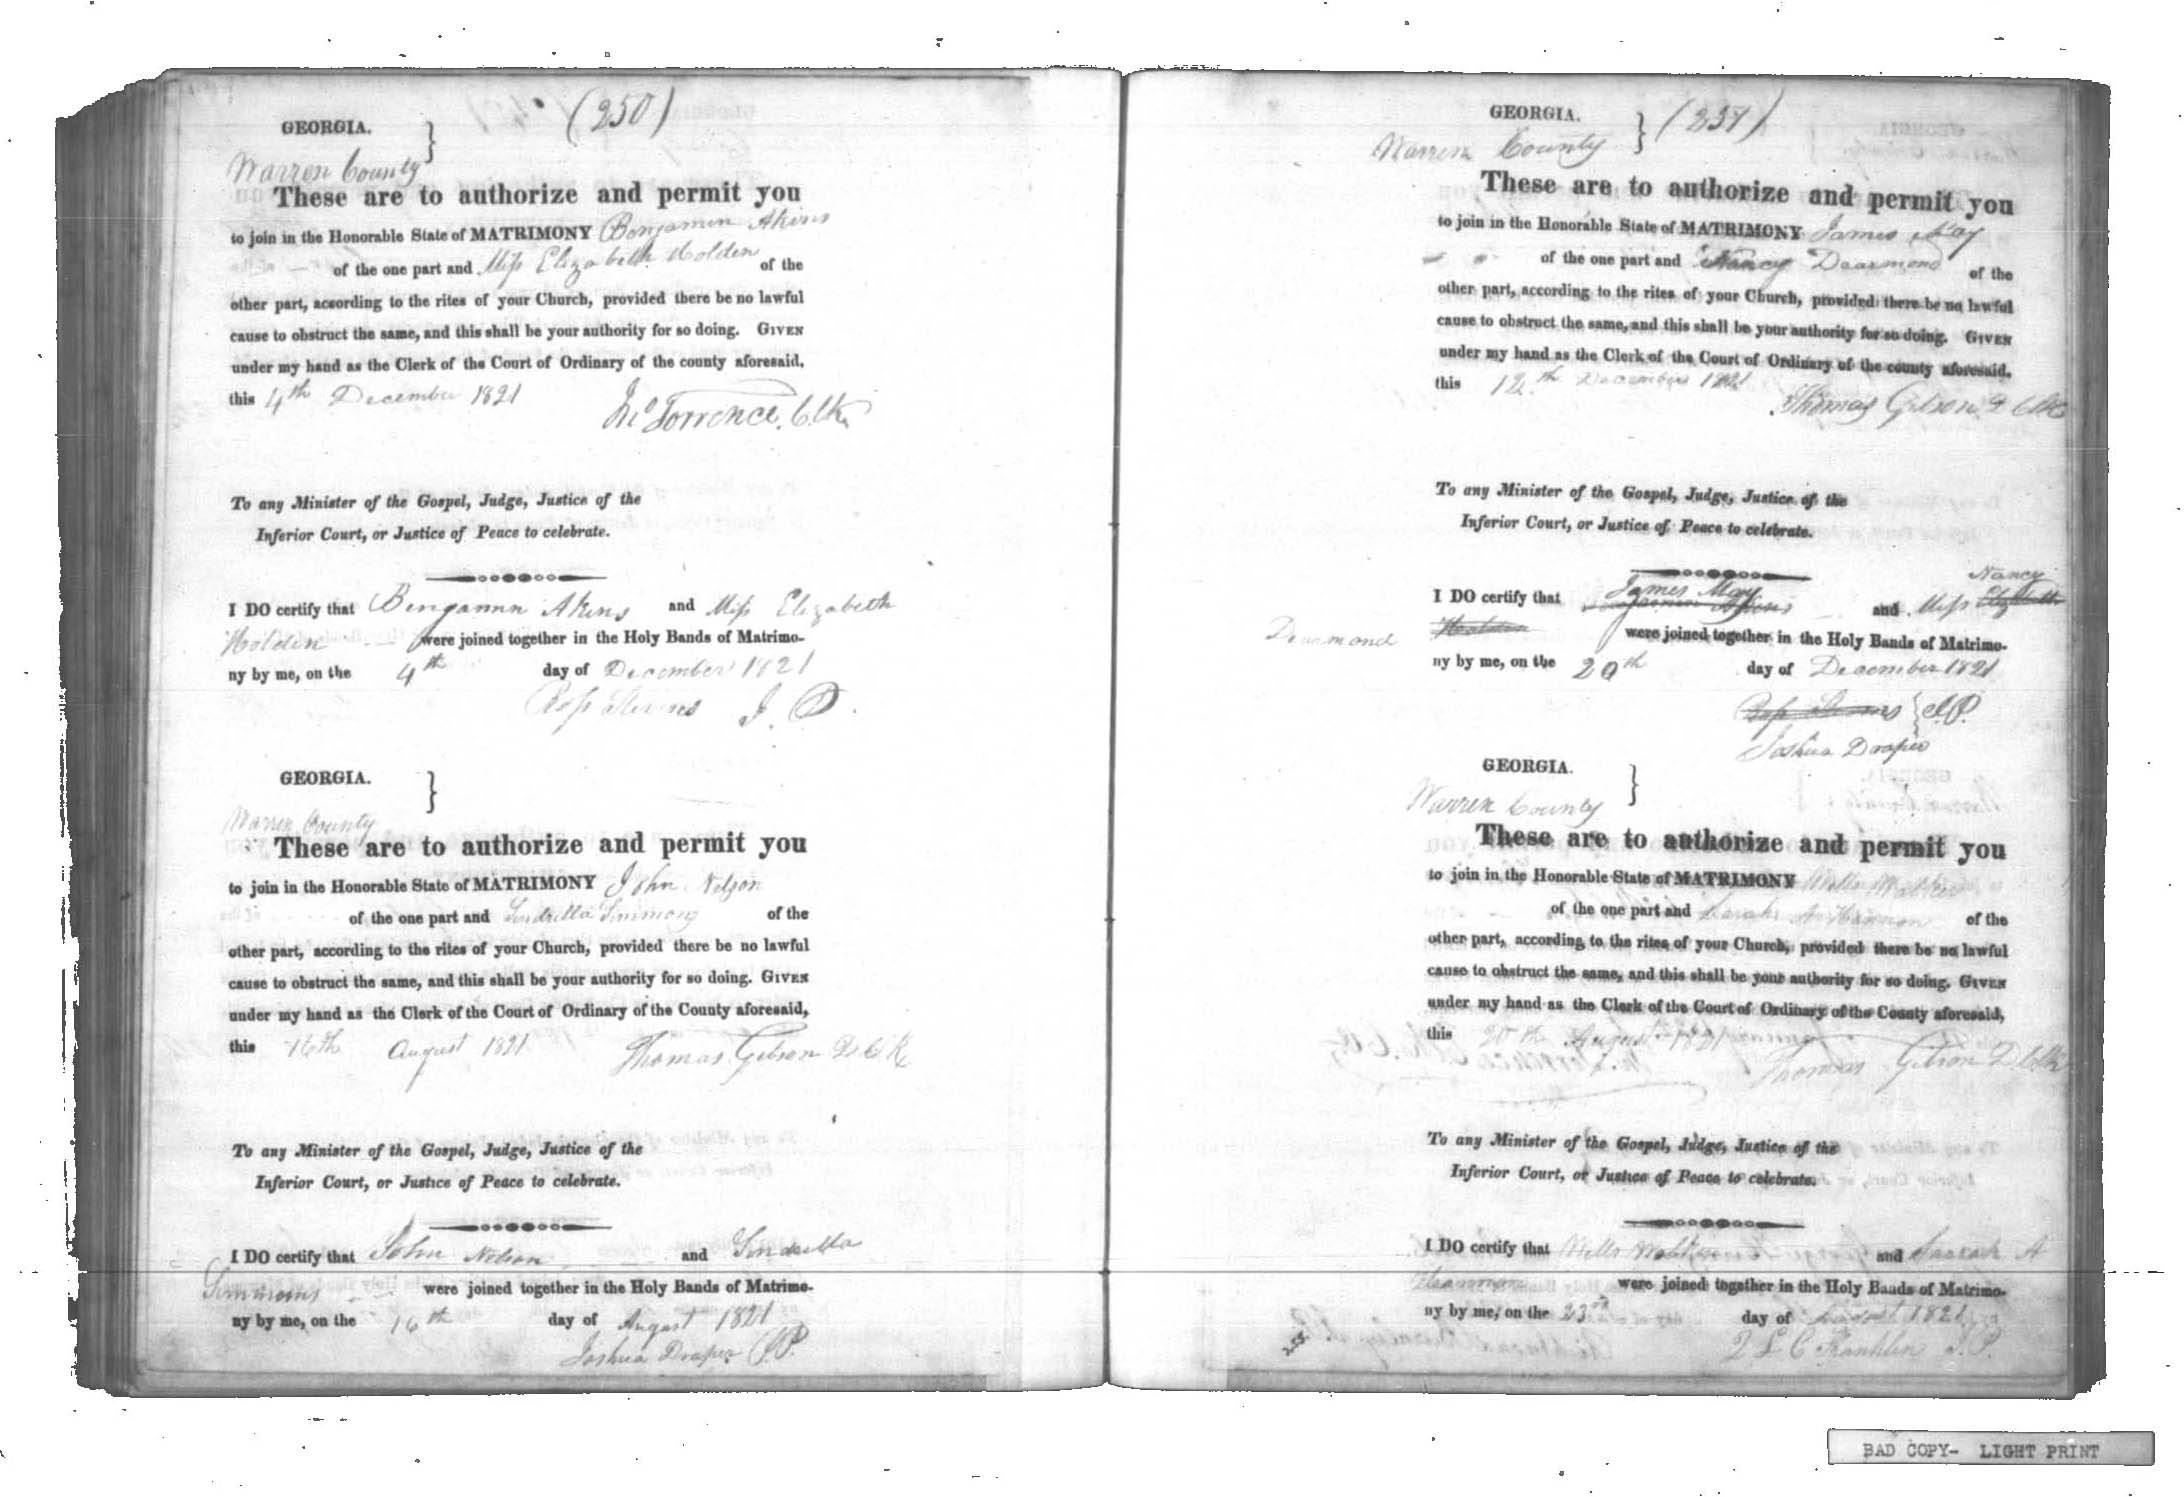 (250)
GEORGIA. }
Warren County
These are to authorize and permit you
to join in the Honorable State of MATRIMONY Benjamin Akins
of the one part and Miss Elizabeth Holden of the
other part, according to the rites of your Church, provided there be no lawful
cause to obstruct the same, and this shall be your authority for so doing. GIVEN
under my hand as the Clerk of the Court of Ordinary of the county aforesaid,
this 4th December 1821
Jno Torrence, Clk
To any Minister of the Gospel, Judge, Justice of the
Inferior Court, or Justice of Peace to celebrate.
I DO certify that Benjamin Akins and Miss Elizabeth
Holden were joined together in the Holy Bands of Matrimo-
ny by me, on the 4th day of December 1821
Ross Stevens J. P.
GEORGIA. }
Warren County
These are to authorize and permit you
to join in the Honorable State of MATRIMONY John Nelson
of the one part and Sindrilla Simmons of the
other part, according to the rites of your Church, provided there be no lawful
cause to obstruct the same, and this shall be your authority for so doing. GIVEN
under my hand as the Clerk of the Court of Ordinary of the County aforesaid,
this 16th August 1821 Thomas Gibson D. Clk
To any Minister of the Gospel, Judge, Justice of the
Inferior Court, or Justice of Peace to celebrate.
I DO certify that John Nelson and Sindrilla
Simmons were joined together in the Holy Bands of Matrimo-
ny by me, on the 16th day of August 1821
Joshua Draper J.P.
GEORGIA. } (251)
Warren County
These are to authorize and permit you
to join in the Honorable State of MATRIMONY James May
of the one part and Nancy Dearmond of the
other part, according to the rites of your Church, provided there be no lawful
cause to obstruct the same, and this shall be your authority for so doing. GIVEN
under my hand as the Clerk of the Court of Ordinary of the county aforesaid,
this 12th December 1821
Thomas Gibson D Clk
To any Minister of the Gospel, Judge, Justice of the
Inferior Court, or Justice of Peace to celebrate.
James May Nancy
I DO certify that Benjamin Akins and Miss Elizabeth
Dearmond Holden were joined together in the Holy Bands of Matrimo-
ny by me, on the 20th day of December 1821
Ross Stevens } J.P.
Joshua Draper
GEORGIA. }
Warren County
These are to authorize and permit you
to join in the Honorable State of MATRIMONY Wills Walker
of the one part and Sarah A Hannon of the
other part, according to the rites of your Church, provided there be no lawful
cause to obstruct the same, and this shall be your authority for so doing. GIVEN
under my hand as the Clerk of the Court of Ordinary of the County aforesaid,
this 20th August 1821
Thomas Gibson D Clk
To any Minister of the Gospel, Judge, Justice of the
Inferior Court, or Justice of Peace to celebrate.
I DO certify that Wills Walker and Saarah A
Hannon were joined together in the Holy Bands of Matrimo-
ny by me, on the 23rd day of August 1821
Franklin J.P.
BAD COPY- LIGHT PRINT